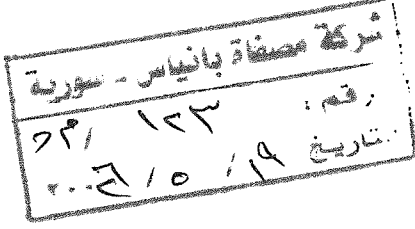 شركة مصفاة بانياس - سورية
رقم : ١٢٣ /
تاريخ ١٩ / ٥ / ٢٠٠